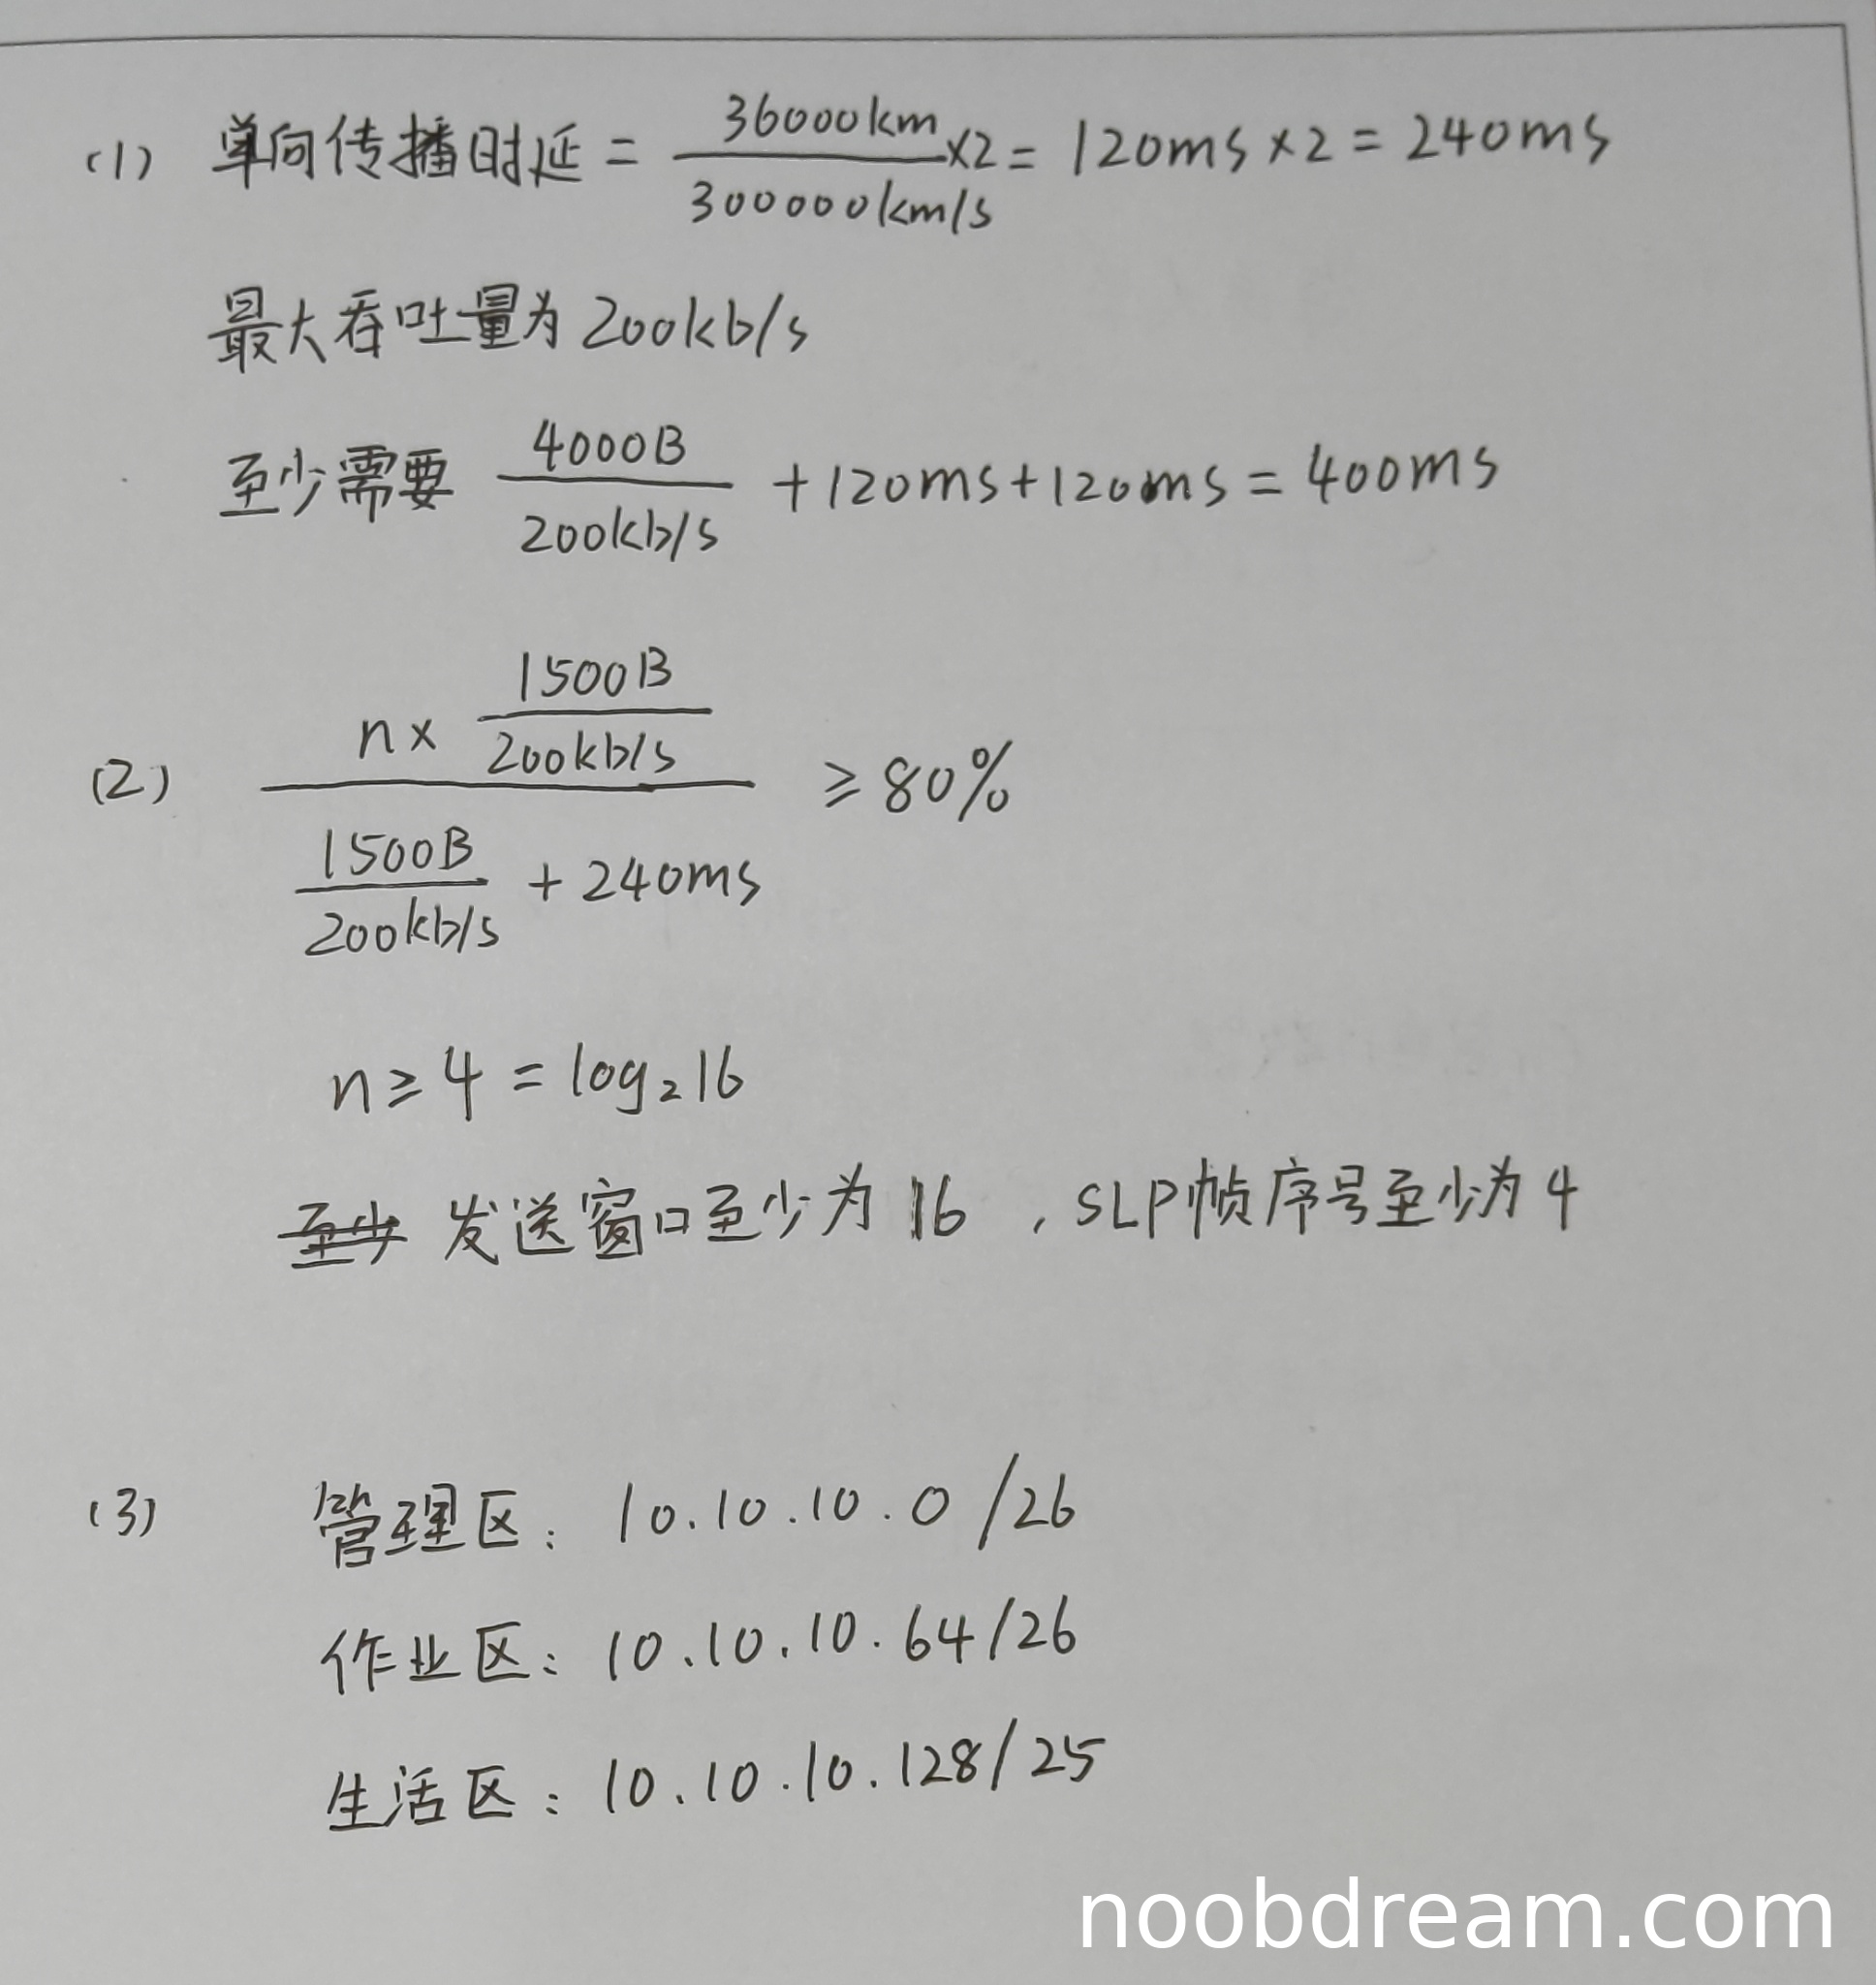 (1) 单向传播时延 = 36000km / 300000km/s ×2 = 120ms × 2 = 240ms
最大吞吐量为 200kb/s
至少需要 4000B / 200kb/s + 120ms + 120ms = 400ms
(2) n × 1500B / 200kb/s / 1500B / 200kb/s + 240ms ≥ 80%
n ≥ 4 = log₂16
至少 发送窗口至少为 16 , SLP帧序号至少为 4
(3) 管理区: 10.10.10.0/26
作业区: 10.10.10.64/26
生活区: 10.10.10.128/25
noobdream.com